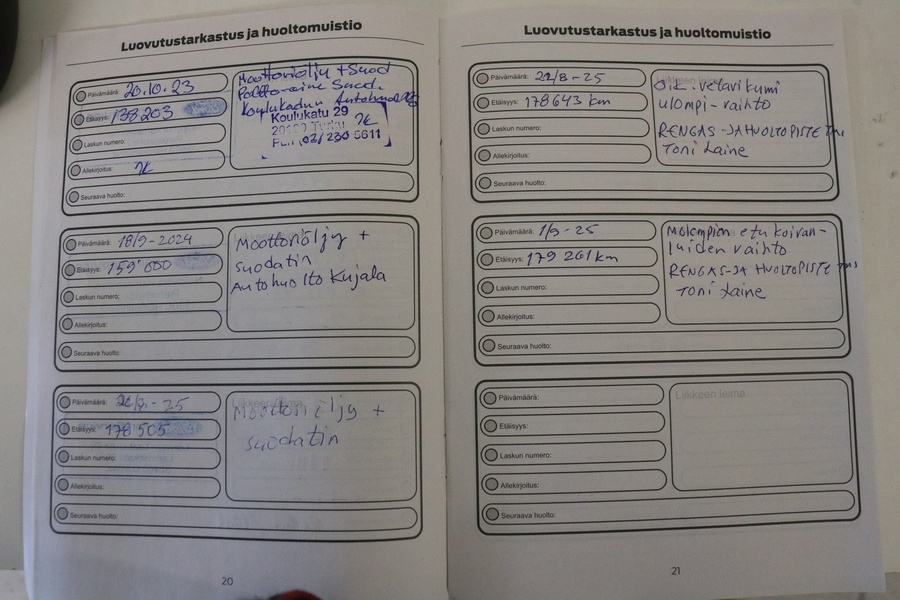 Luovutustarkastus ja huoltomuistio
Päivämäärä: 20.10.23
Etäisyys: 138203
Laskun numero:
Allekirjoitus:
Seuraava huolto:
Moottoriöljy + Suod
Polttoaine Suod.
Koulukadun
Koulukatu 29
Turku
Päivämäärä: 18/9-2024
Etäisyys: 159'000
Laskun numero:
Allekirjoitus:
Seuraava huolto:
Moottoriöljy +
suodatin
Autohuolto Kujala
Päivämäärä: -25
Etäisyys: 178505
Laskun numero:
Allekirjoitus:
Seuraava huolto:
Liikkeen leima
Moottoriöljy +
suodatin
20
Luovutustarkastus ja huoltomuistio
Päivämäärä: 22/8-25
Etäisyys: 178643 km
Laskun numero:
Allekirjoitus:
Seuraava huolto:
Oik. vetarikumi
ulompi-vaihto
RENGAS-JA HUOLTOPISTE
Toni Laine
Päivämäärä: 1/9-25
Etäisyys: 179201 km
Laskun numero:
Allekirjoitus:
Seuraava huolto:
Molempien etu koiran-
luiden vaihto
RENGAS-JA HUOLTOPISTE
Toni Laine
Päivämäärä:
Etäisyys:
Laskun numero:
Allekirjoitus:
Seuraava huolto:
Liikkeen leima
21